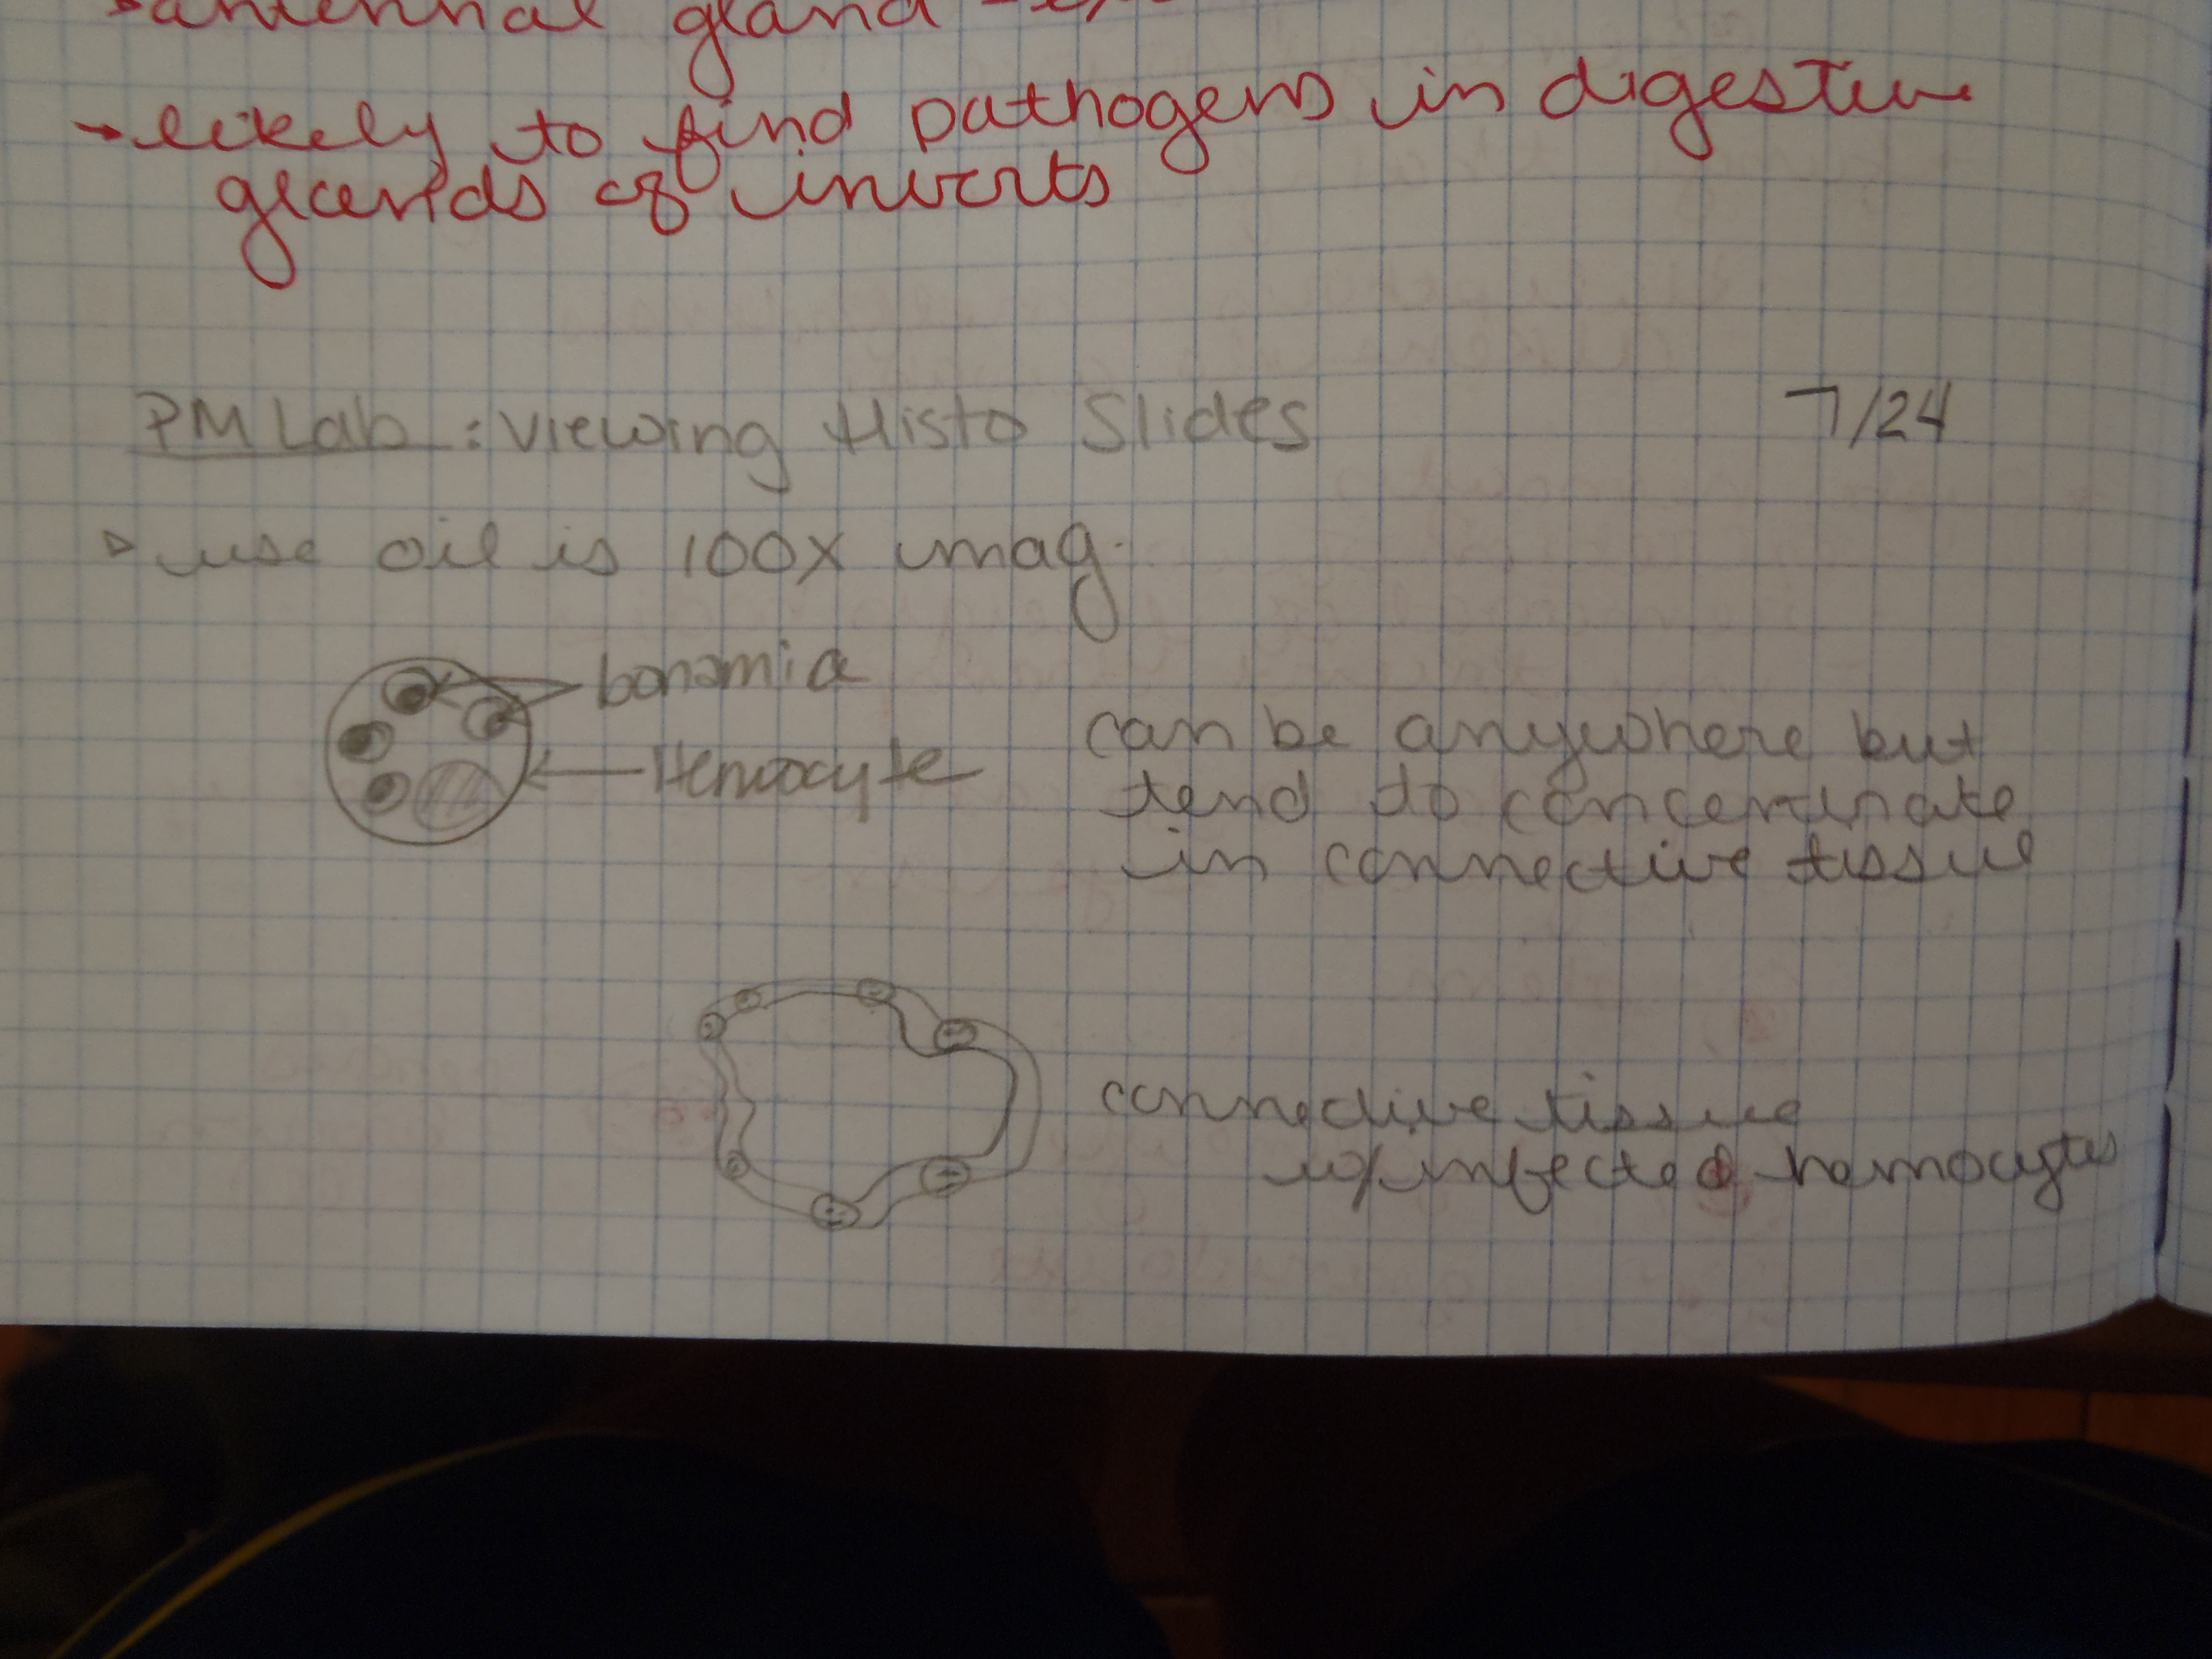 antennal gland
→ likely to find pathogens in digestive
glands of inverts
PM Lab: Viewing Histo Slides 7/24
▹ use oil is 100X mag.
bonamia
Hemocyte
can be anywhere but
tend to concentrate
in connective tissue
connective tissue
w/ infected hemocytes